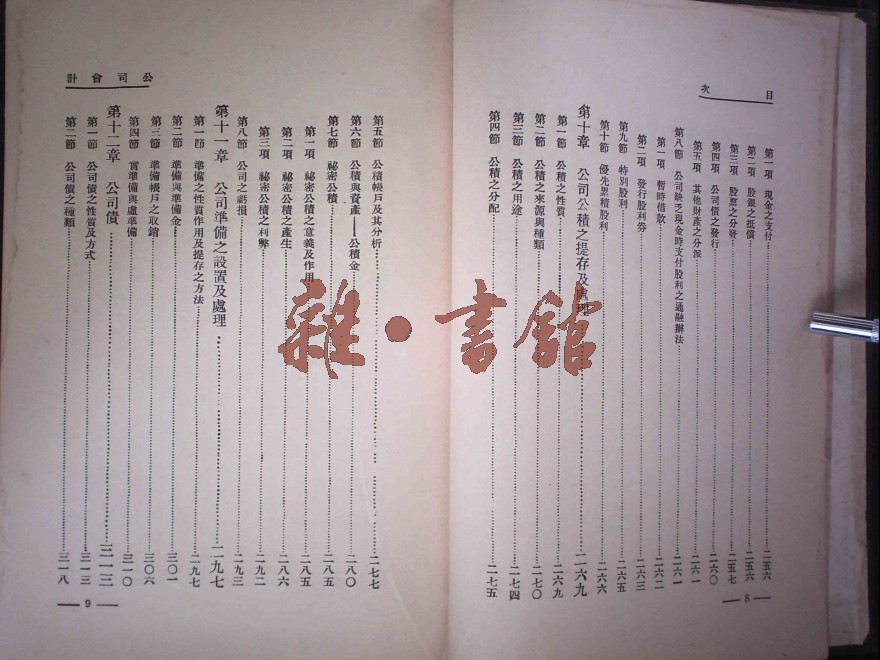 目次
第一項 現金之支付……二五六
第二項 股銀之抵償……二五六
第三項 股票之分發……二五七
第四項 公司債之發行……二六〇
第五項 其他財產之分派……二六一
第八節 公司缺乏現金時支付股利之通融辦法……二六一
第一項 暫時借款……二六二
第二項 發行股利券……二六三
第九節 特別股利……二六五
第十節 優先累積股利……二六六
第十章 公司公積之提存及處理……二六九
第一節 公積之性質……二六九
第二節 公積之來源與種類……二七〇
第三節 公積之用途……二七四
第四節 公積之分配……二七五
8
公司會計
第五節 公積帳戶及其分析……二七七
第六節 公積與資產——公積金……二八〇
第七節 祕密公積……二八五
第一項 祕密公積之意義及作用……二八五
第二項 祕密公積之產生……二八六
第三項 祕密公積之利弊……二九二
第八節 公司之虧損……二九三
第十一章 公司準備之設置及處理……二九七
第一節 準備之性質作用及提存之方法……二九七
第二節 準備與準備金……三〇一
第三節 準備帳戶之取銷……三〇六
第四節 實準備與虛準備……三一〇
第十二章 公司債……三一三
第一節 公司債之性質及方式……三一三
第二節 公司債之種類……三一八
9
雜·書館